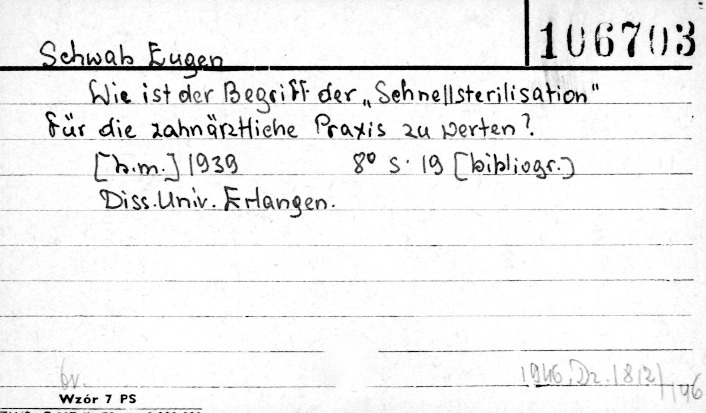 106703
Schwab Eugen
Wie ist der Begriff der „Schnellsterilisation"
für die zahnärztliche Praxis zu werten?
[b.m.] 1939 8° s. 19 [bibliogr.]
Diss. Univ. Erlangen.
br.
Wzór 7 PS